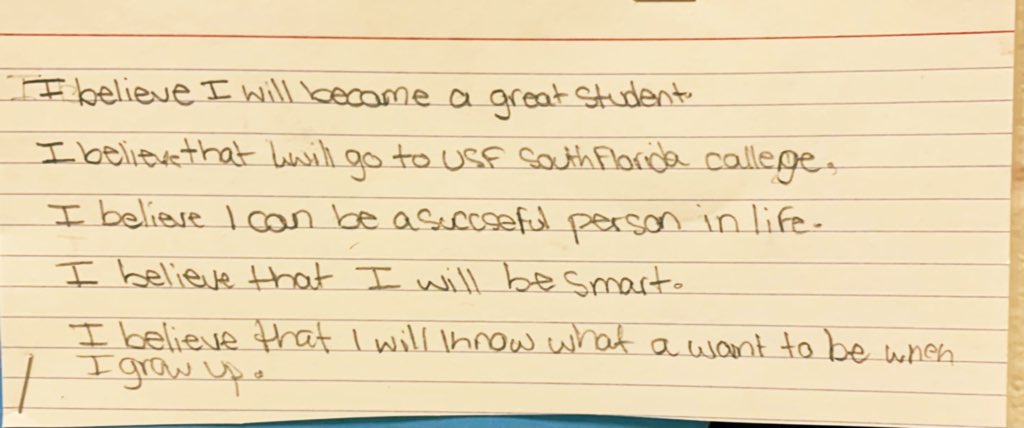 I believe I will become a great student.
I believe that I will go to USF South Florida callege.
I believe I can be a succseful person in life.
I believe that I will be smart.
I believe that I will know what a want to be when
I grow up.